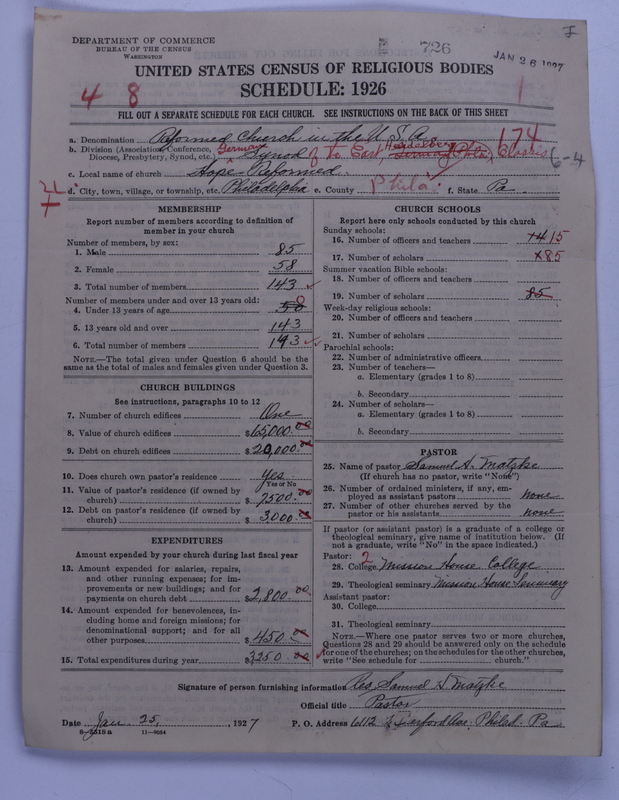 DEPARTMENT OF COMMERCE
BUREAU OF THE CENSUS
WASHINGTON
726
JAN 26 1927
UNITED STATES CENSUS OF RELIGIOUS BODIES
SCHEDULE: 1926
4 8
1
FILL OUT A SEPARATE SCHEDULE FOR EACH CHURCH. SEE INSTRUCTIONS ON THE BACK OF THIS SHEET
a. Denomination Reformed Church in the U. S. A. 174
b. Division (Association, Conference, Diocese, Presbytery, Synod, etc.) German Synod of the East Phila. Classis 6-4
c. Local name of church Hope Reformed
d. City, town, village, or township, etc. Philadelphia e. County Phila. f. State Pa
MEMBERSHIP
Report number of members according to definition of
member in your church
Number of members, by sex:
1. Male 85
2. Female 58
3. Total number of members 143
Number of members under and over 13 years old:
4. Under 13 years of age 50 0
5. 13 years old and over 143
6. Total number of members 193
NOTE.—The total given under Question 6 should be the
same as the total of males and females given under Question 3.
CHURCH BUILDINGS
See instructions, paragraphs 10 to 12
7. Number of church edifices One
8. Value of church edifices $65,000.00
9. Debt on church edifices $20,000.00
10. Does church own pastor's residence Yes
Yes or No
11. Value of pastor's residence (if owned by
church) $7500.00
12. Debt on pastor's residence (if owned by
church) $3,000.00
EXPENDITURES
Amount expended by your church during last fiscal year
13. Amount expended for salaries, repairs,
and other running expenses; for im-
provements or new buildings; and for
payments on church debt $2,800.00
14. Amount expended for benevolences, in-
cluding home and foreign missions; for
denominational support; and for all
other purposes $450.00
15. Total expenditures during year $3250.00
CHURCH SCHOOLS
Report here only schools conducted by this church
Sunday schools:
16. Number of officers and teachers 15
17. Number of scholars 85
Summer vacation Bible schools:
18. Number of officers and teachers
19. Number of scholars 85
Week-day religious schools:
20. Number of officers and teachers
21. Number of scholars
Parochial schools:
22. Number of administrative officers
23. Number of teachers—
a. Elementary (grades 1 to 8)
b. Secondary
24. Number of scholars—
a. Elementary (grades 1 to 8)
b. Secondary
PASTOR
25. Name of pastor Samuel A. Matzke
(If church has no pastor, write "None")
26. Number of ordained ministers, if any, em-
ployed as assistant pastors none
27. Number of other churches served by the
pastor or his assistants none
If pastor (or assistant pastor) is a graduate of a college or
theological seminary, give name of institution below. (If
not a graduate, write "No" in the space indicated.)
Pastor: 2
28. College Mission House College
29. Theological seminary Mission House Seminary
Assistant pastor:
30. College
31. Theological seminary
NOTE.—Where one pastor serves two or more churches,
Questions 28 and 29 should be answered only on the schedule
for one of the churches; on the schedules for the other churches,
write "See schedule for church."
Signature of person furnishing information Rev Samuel A. Matzke
Official title Pastor
Date Jan. 25, 1927 P. O. Address 6112 Ave. Philad. Pa
8—2518a 11—9034